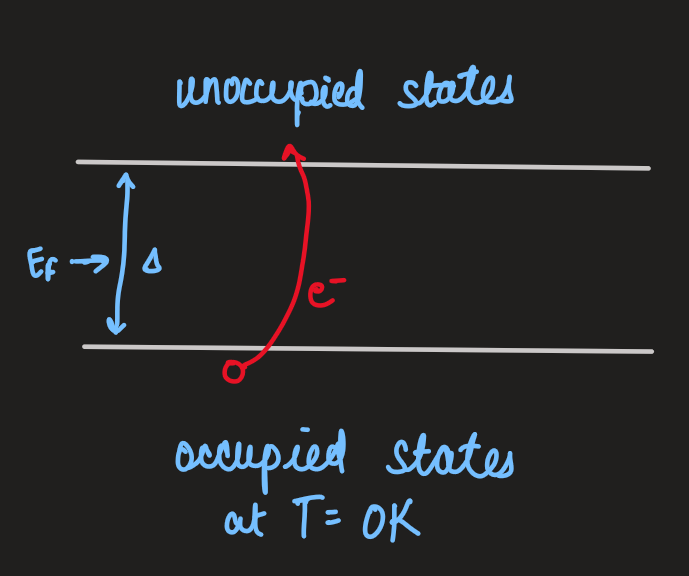 unoccupied states
EF → Δ
e⁻
occupied states
at T = 0K